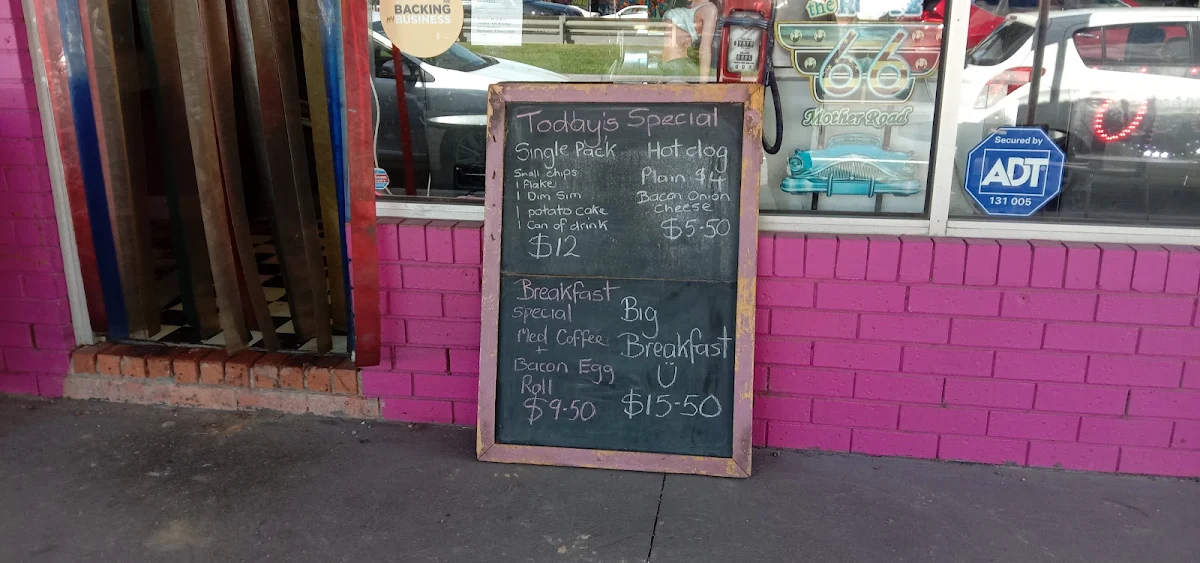 BACKING
MY BUSINESS
the
66
Mother Road
Secured by
ADT
131 005
Today's Special
Single Pack
Small chips
1 Flake
1 Dim Sim
1 potato cake
1 Can of drink
$12
Hotdog
Plain $4
Bacon Onion
Cheese
$5-50
Breakfast
special
Med Coffee
+
Bacon Egg
Roll
$9-50
Big
Breakfast
$15-50